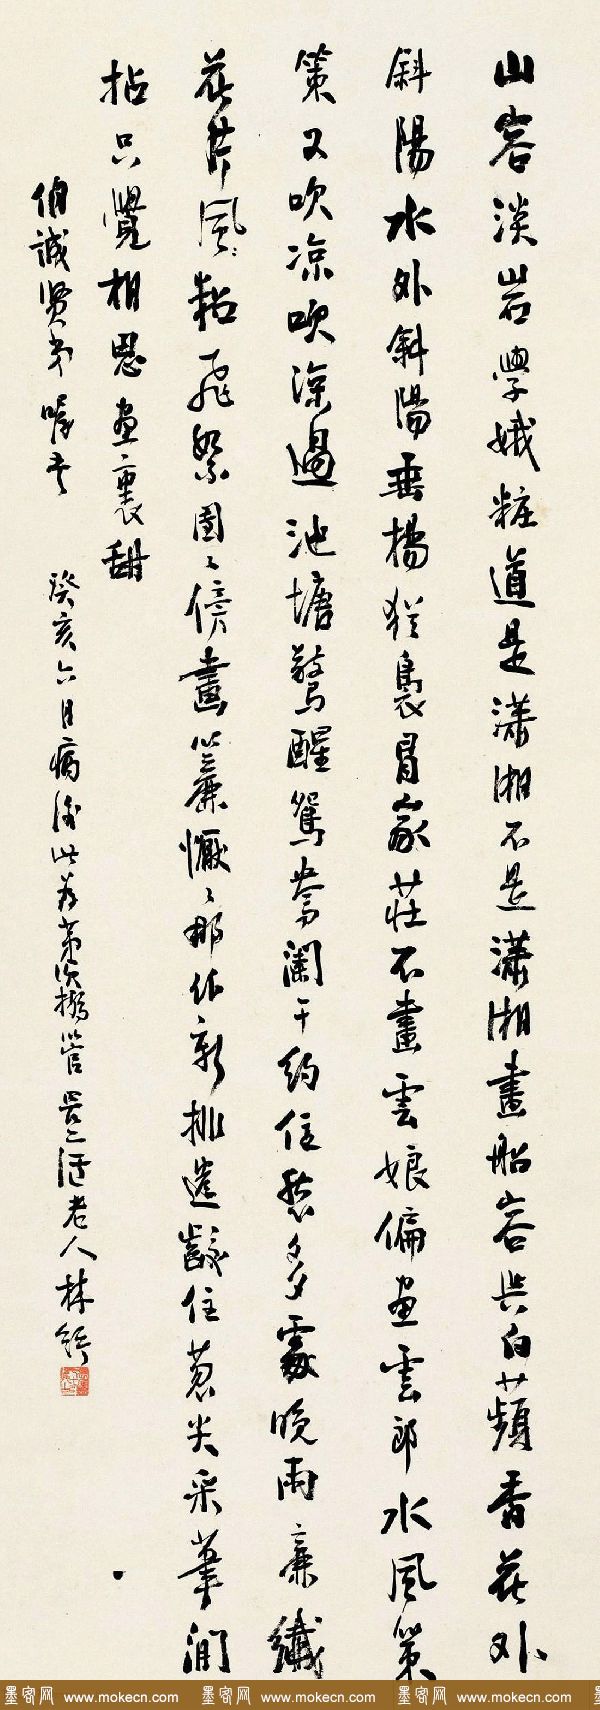 山容淡岩學娥粧道是瀟湘不是瀟湘畫船容與白蘋香花外
斜陽水外斜陽垂楊猶裊冒家莊不畫雲娘偏畫雲郎水風策
策又吹凉吹凉過池塘驚醒鴛鴦闌干約住愁多處晚雨廉纖
花片風黏飛絮團〻傍畫簾懨〻那作新排遣齩住蔥尖采筆閒
拈只覺相思畫裏甜
伯誠賢弟 癸亥六月病後此為第次撥管 老人林紓
墨客网 www.mokecn.com 墨客网 www.mokecn.com 墨客网 www.mokecn.com